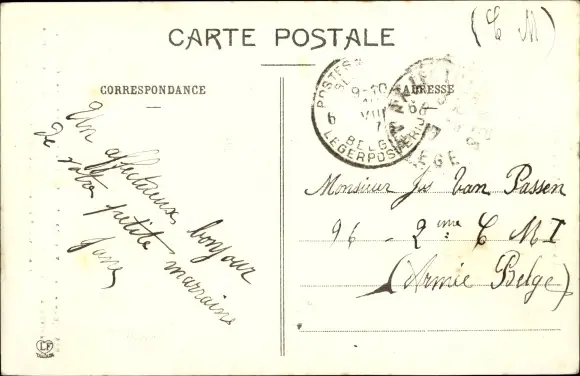 (C M)
CARTE POSTALE
CORRESPONDANCE
ADRESSE
POSTES
9-10
6 VIII
7
BELG
LEGERPOSTERIJ
Un affectueux bonjour
de votre petite marraine
Monsieur Jos Van Passen
96 - 2me C M I
(Armée Belge)
LF